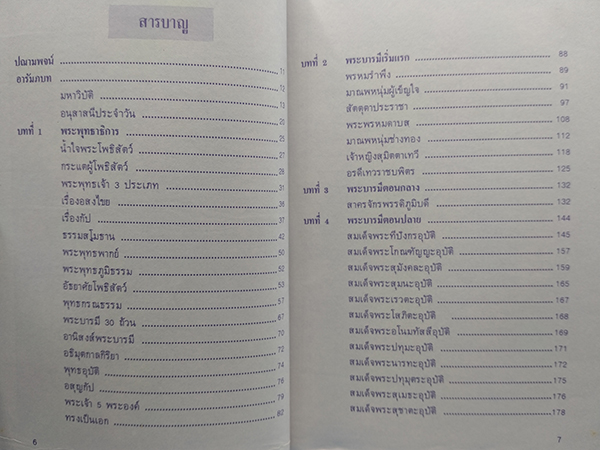 สารบาญ
ปณามพจน์ 11
อารัมภบท 12
มหาวิบัติ 13
อนุสาสนีประจำวัน 20
บทที่ 1 พระพุทธาธิการ 25
น้ำใจพระโพธิสัตว์ 27
กระแตผู้โพธิสัตว์ 31
พระพุทธเจ้า 3 ประเภท 35
เรื่องอสงไขย 36
เรื่องกัป 37
ธรรมสโมธาน 42
พระพุทธพากย์ 50
พระพุทธภูมิธรรม 52
อัธยาศัยโพธิสัตว์ 53
พุทธกรณธรรม 57
พระบารมี 30 ถ้วน 67
อานิสงส์พระบารมี 70
อธิมุตกาลกิริยา 72
พุทธอุบัติ 74
อสุญกัป 76
พระเจ้า 5 พระองค์ 79
ทรงเป็นเอก 82
6
บทที่ 2 พระบารมีเริ่มแรก 88
พรหมรำพึง 89
มาณพหนุ่มผู้เข็ญใจ 91
สัตตุตาประราชา 97
พระพรหมดาบส 108
มาณพหนุ่มช่างทอง 112
เจ้าหญิงสุมิตตาเทวี 118
อรดีเทวราชบพิตร 125
บทที่ 3 พระบารมีตอนกลาง 132
สาครจักรพรรดิภูมิบดี 132
บทที่ 4 พระบารมีตอนปลาย 144
สมเด็จพระทีปังกรอุบัติ 145
สมเด็จพระโกณฑัญญะอุบัติ 157
สมเด็จพระสุมังคละอุบัติ 159
สมเด็จพระสุมนะอุบัติ 165
สมเด็จพระเรวตะอุบัติ 167
สมเด็จพระโสภิตะอุบัติ 168
สมเด็จพระอโนมทัสสีอุบัติ 169
สมเด็จพระปทุมะอุบัติ 171
สมเด็จพระนารทะอุบัติ 172
สมเด็จพระปทุมุตระอุบัติ 175
สมเด็จพระสุเมธะอุบัติ 176
สมเด็จพระสุชาตะอุบัติ 178
7